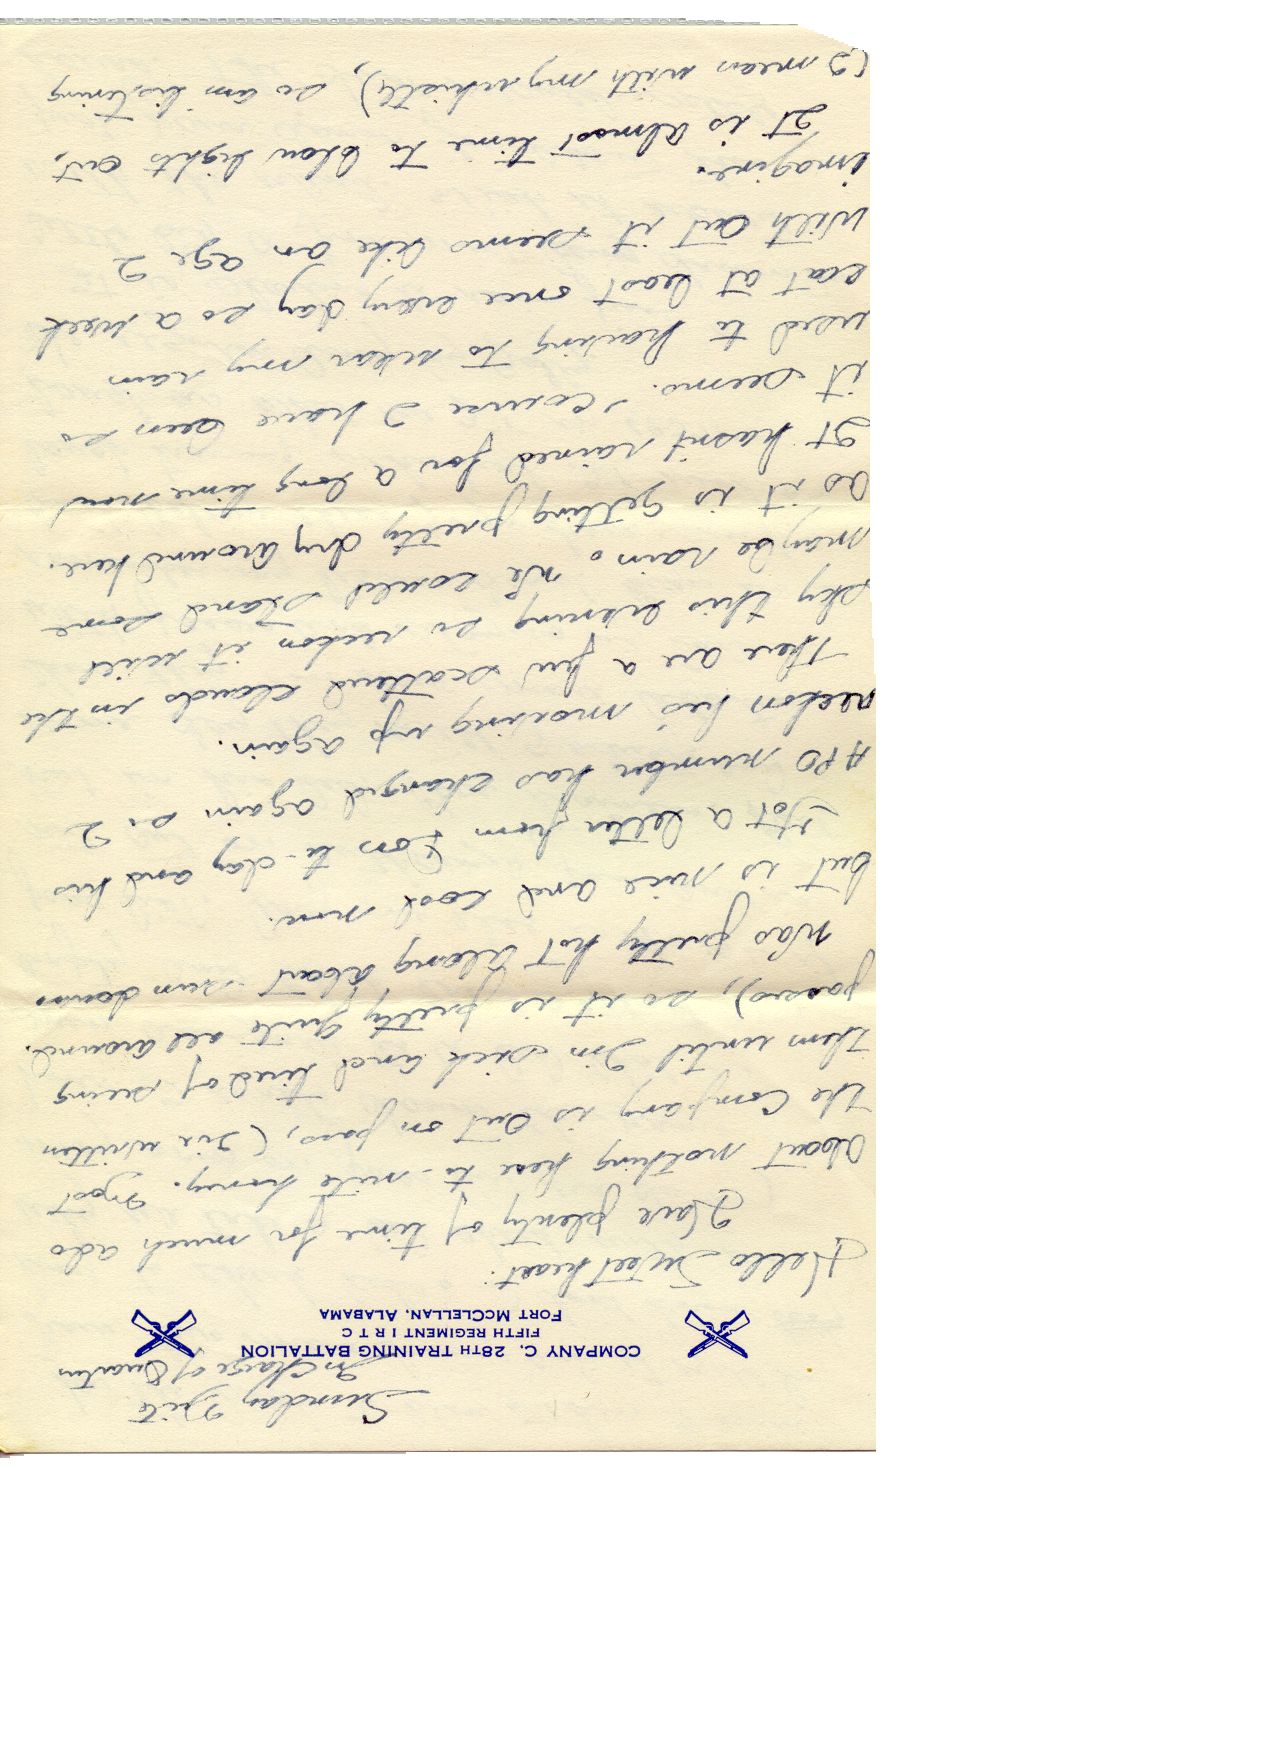 Sunday Nite
In Charge of Quarters
COMPANY C. 28TH TRAINING BATTALION
FIFTH REGIMENT I R T C
FORT MCCLELLAN, ALABAMA
Hello Sweetheart:
Have plenty of time for much ado
about nothing here to-nite honey. Most
the Company is out on pass, (I've written
them until I'm sick and tired of seeing
passes), so it is pretty quite all around.
Was pretty hot along about sun down
but is nice and cool now.
Got a letter from Don to-day and his
APO number has changed again so I
reckon he's moving up again.
There are a few scattered clouds in the
sky this evening so reckon it will
maybe rain. We could stand some
as it is getting pretty dry around here.
It hasn't rained for a long time now
it seems. 'Course I have been so
used to having to wear my rain
coat at least once every day so a week
with out it seems like an age I
imagine.
It is almost time to blow lights out,
(I mean with my whistle), so am listening